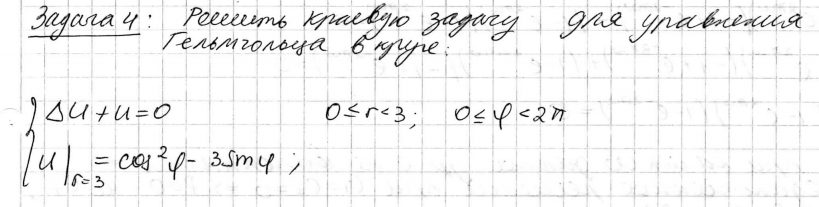 Задача 4: Решить краевую задачу для уравнения
Гельмгольца в круге:
{ Δu + u = 0      0 ≤ r < 3;   0 ≤ φ < 2π
{ u|_{r=3} = cos²φ - 3sinφ;